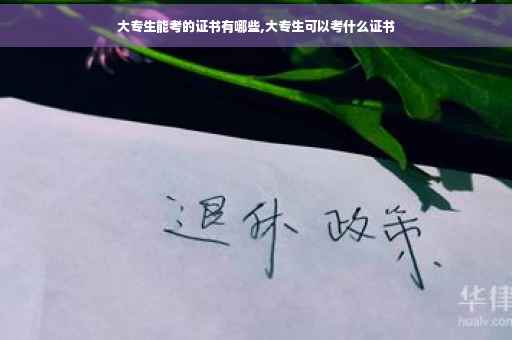 大专生能考的证书有哪些,大专生可以考什么证书
退休 政策
华律
hualv.com